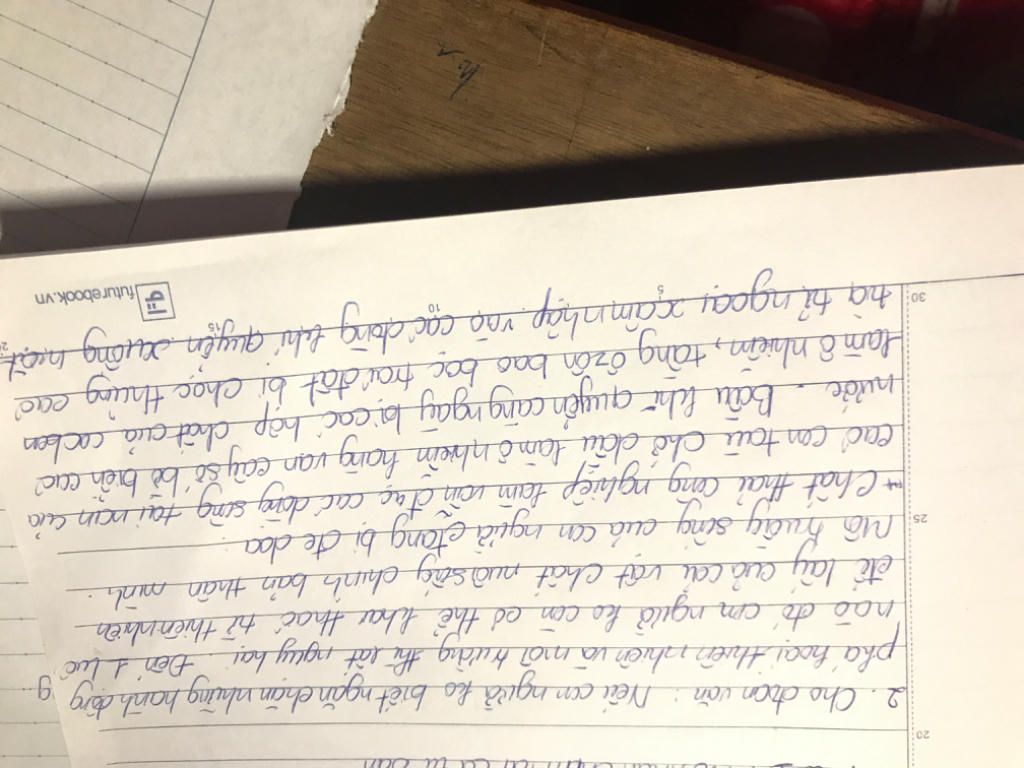 2. Cho đoạn văn: Nếu con người ko biết ngăn chặn những hành động
phá hoại thiên nhiên và môi trường thì rất nguy hại. Đến 1 lúc
nào đó con người ko còn có thể khai thác từ thiên nhiên
để lấy của cải vật chất nuôi sống chính bản thân mình.
Môi trường sống của con người đang bị đe dọa.
Chất thải công nghiệp làm vẩn đục các dòng sông tai nạn của
các con tàu chở dầu làm ô nhiễm hàng vạn cây số bờ biển các
nước. Bầu khí quyển càng ngày bị các hợp chất của cacbon
làm ô nhiễm, tầng ôzôn bao bọc trái đất bị chọc thủng các
tia tử ngoại xâm nhập vào các dòng khí quyển xuống mặt
20
25
30
5
10
15
futurebook.vn